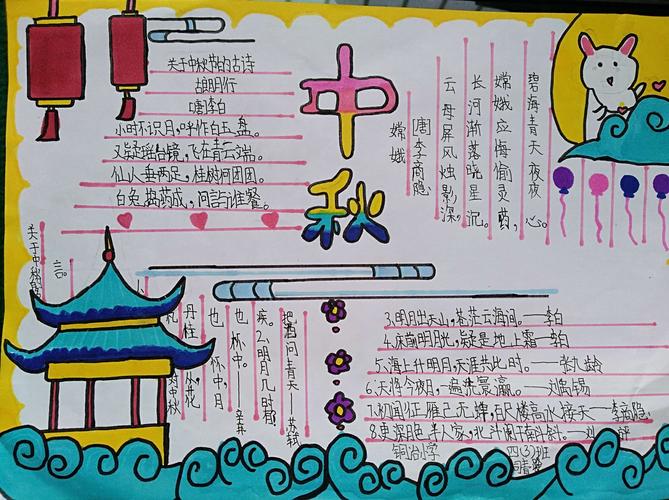 关于中秋节的古诗
胡朗行
[唐]李白
小时不识月,呼作白玉盘。
又疑瑶台镜,飞在青云端。
仙人垂两足,桂树何团团。
白兔捣药成,问言与谁餐。
中秋
嫦娥
[唐]李商隐
云母屏风烛影深,
长河渐落晓星沉。
嫦娥应悔偷灵药,
碧海青天夜夜心。
关于中秋
言。
丹桂
从花
也杯中。
也杯中,月
疾。2、明月几时有
把酒问青天——苏轼
3、明月出天山,苍茫云海间。——李白
4、床前明月光,疑是地上霜——李白
5、海上升明月,天涯共比时。——张九龄
6、天将今夜月,一遍洗寰瀛。——刘禹锡
7、初闻征雁已无蝉,百尺楼高水接天——李商隐
8、更深月色半人家,北斗阑干南斗斜。——刘
铜冶小学
四(3)班